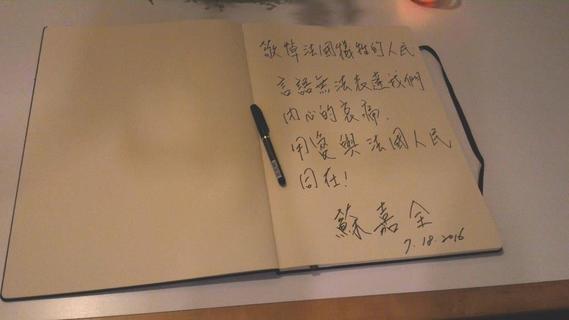 敬悼法國犧牲的人民
言語無法表達我們
內心的哀痛.
用愛與法國人民
同在!
蘇嘉全
7.18.2016